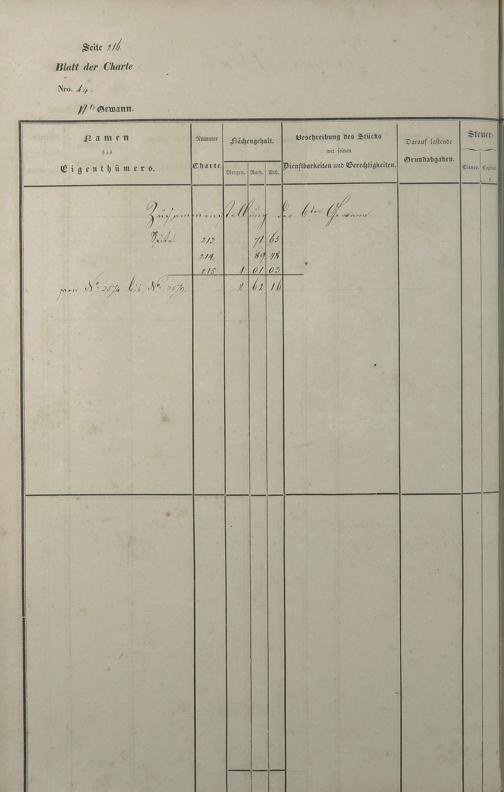 Seite 216.
Blatt der Charte
Nro. 44.
Gewann.
Namen des Eigenthümers.
Nummer Charte.
Flächengehalt.
Morgen. Ruth. Fuß.
Beschreibung des Stücks mit seinen Dienstbarkeiten und Gerechtigkeiten.
Darauf lastende Grundabgaben.
Steuer-
Classe. Capital
Zusammenstellung der 6ten Gewann
Seite 213 . 71 65
214. 89 48
215 1 01 03
von No bis No 2 62 16